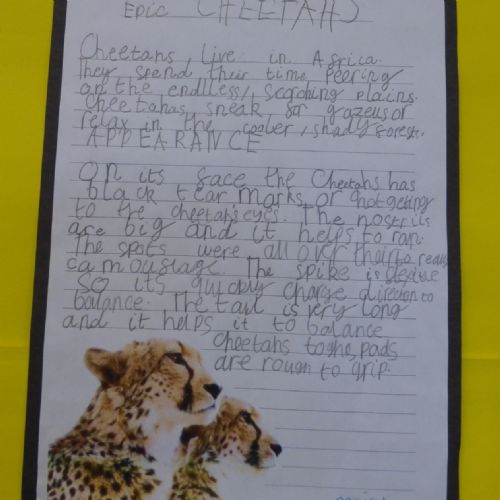 EPIC CHEETAHS
Cheetahs, live in Africa.
They spend their time peering
on the endless, scorching plains.
Cheetahas sneak for gazeus or
relax in the cooler, shady forests.
APPEARANCE
On its face the Cheetahs has
black tear marks or not geting
to the cheetah's eyes. The nostrils
are big and it helps to ran.
The spots were all over their to really
camouslage. The spike is
so its quickly charge direction to
balance. The tail is very long
and it helps it to balance
Cheetahs pads
are rough to grip.